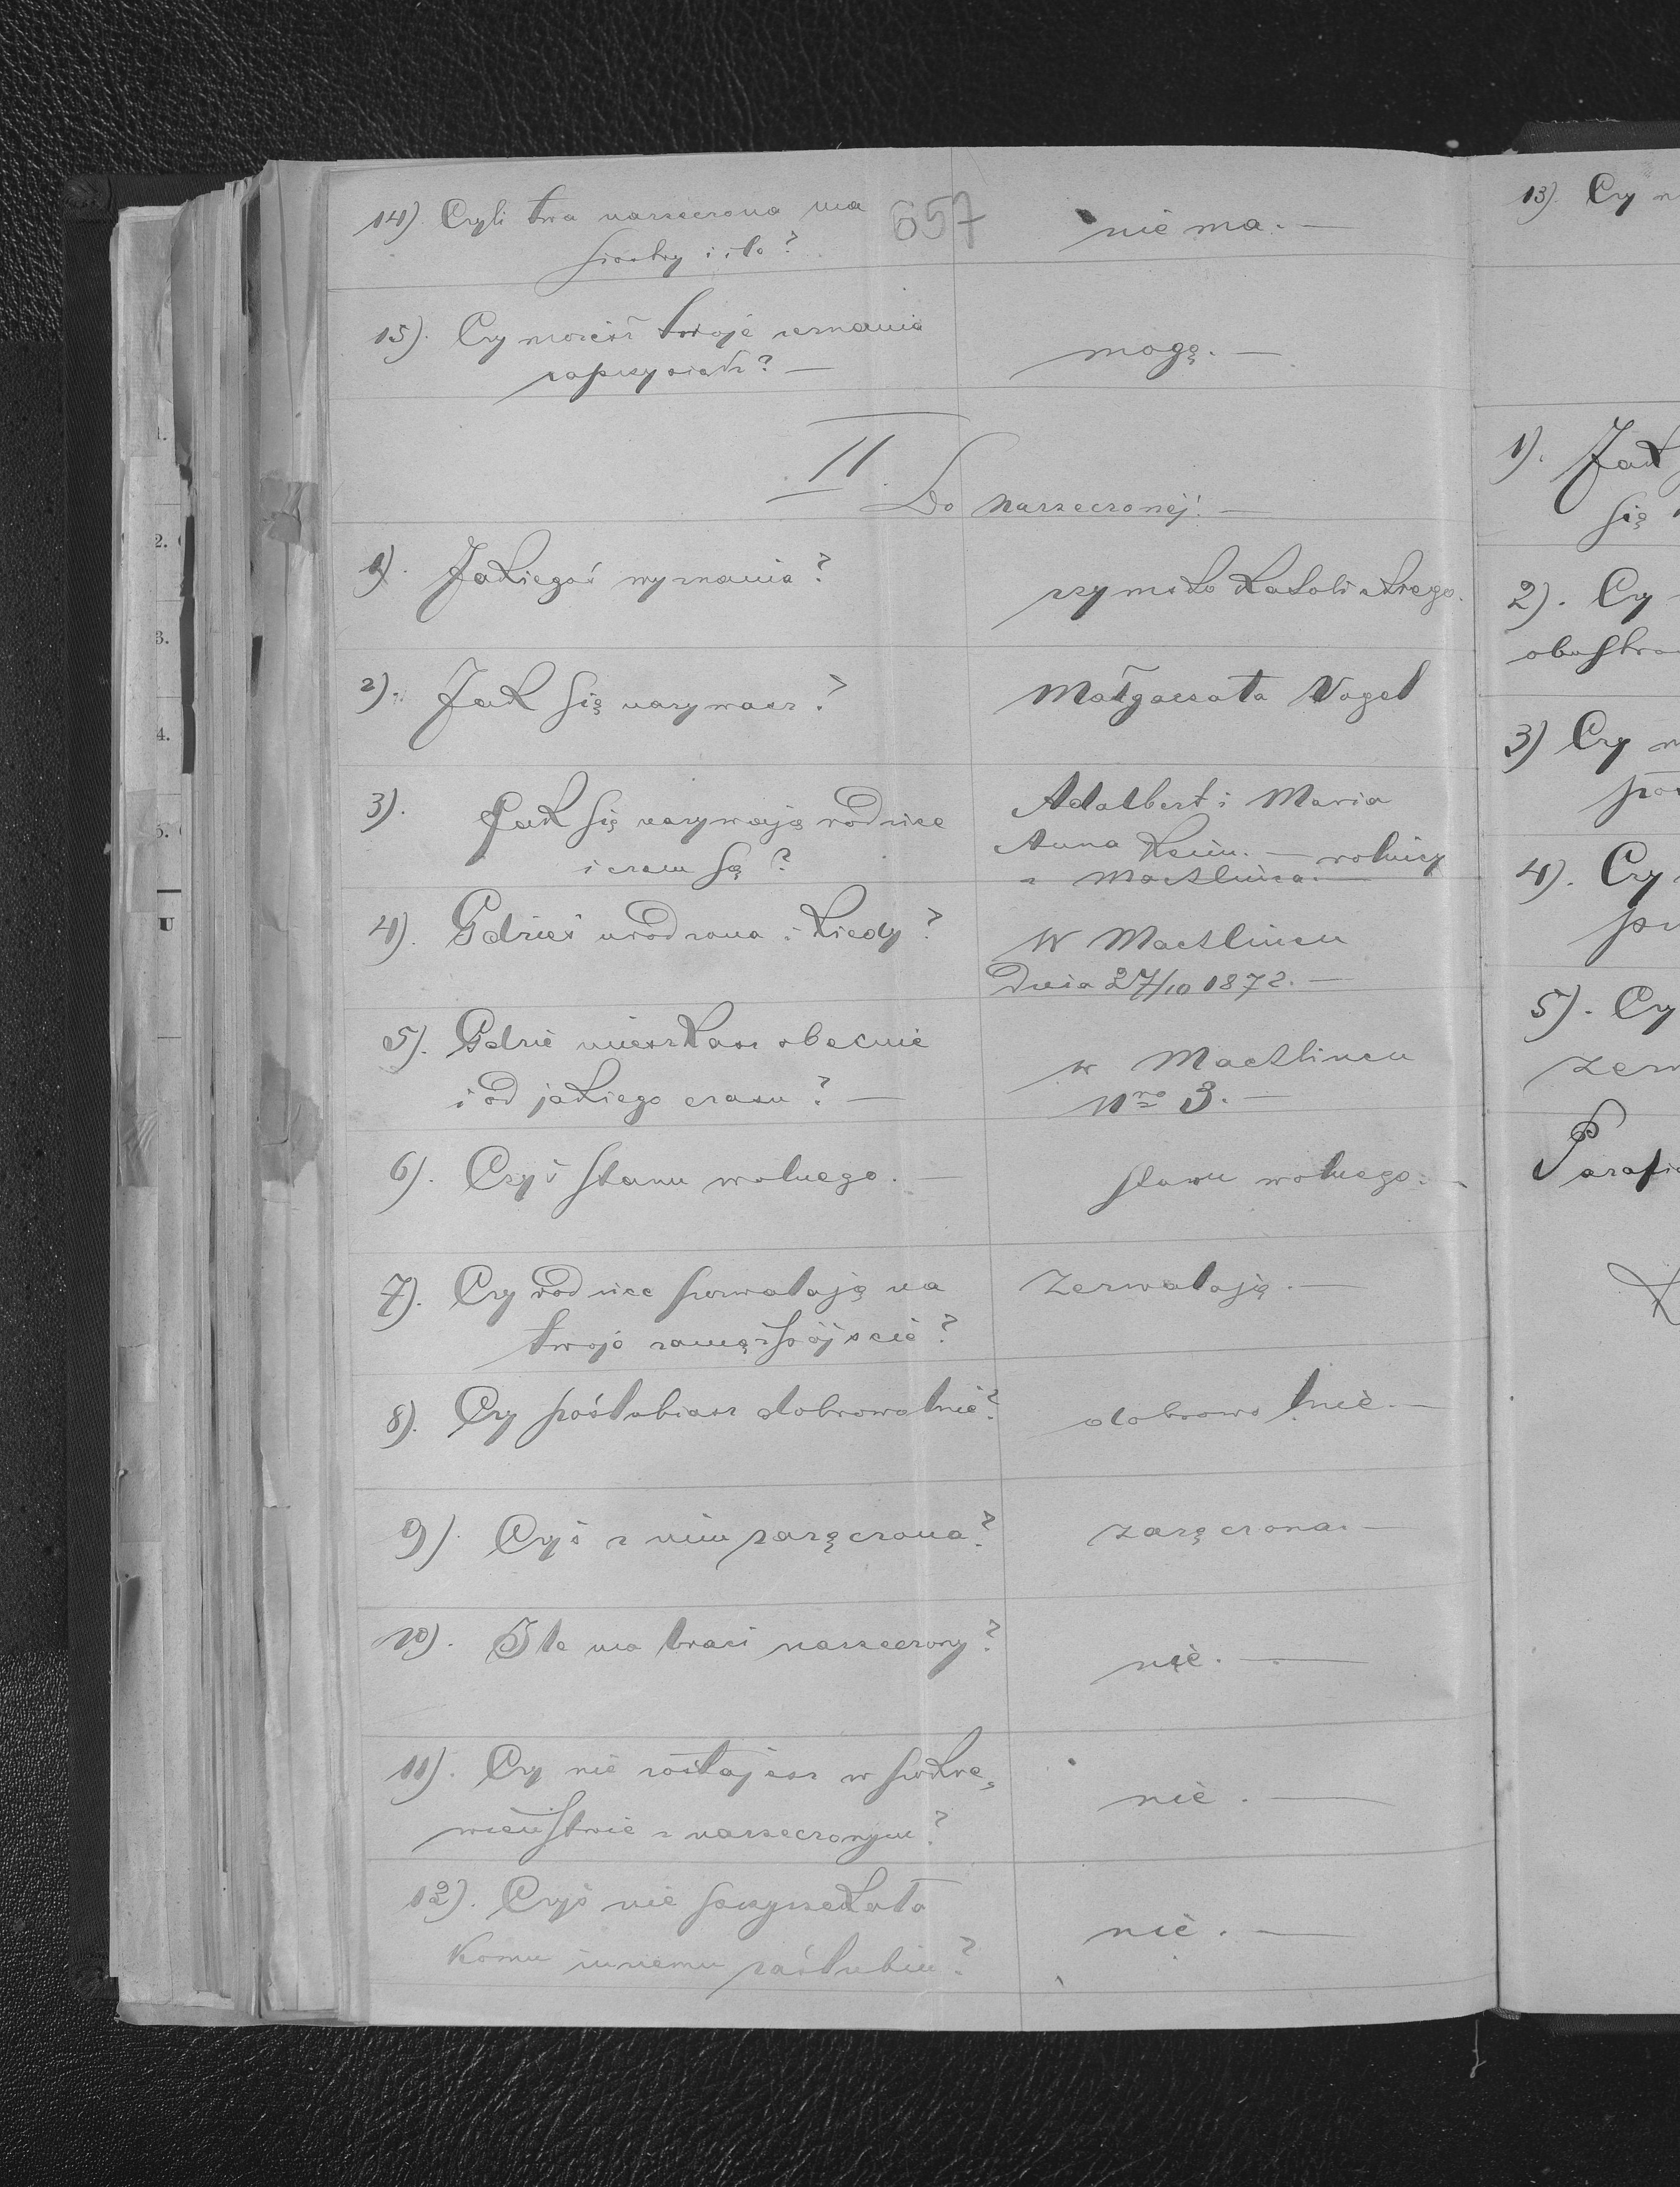 657
14). Czyli twa narzeczona ma
siostry i ile?
nie ma. —
15). Czy możesz twoje zeznania
zaprzysiądz? —
mogę. —
II
Do narzeczonéj: —
1). Jakiegoś wyznania?
rzymsko katolickiego.
2). Jak się nazywasz?
Małgorzata Vogel
3). Jak się nazywają rodzice
i czem są?
Adalbert i Maria
Anna — rolnicy
z Machlińca. —
4). Gdzieś urodzona i kiedy?
W Machlińcu
Dnia 27/10 1872. —
5). Gdzie mieszkasz obecnie
i od jakiego czasu? —
w Machlińcu
Nro 3. —
6). Czyś stanu wolnego. —
stanu wolnego. —
7). Czy rodzice zezwalają na
twoje zamążpójście?
Zezwalają. —
8). Czy poślubiasz dobrowolnie?
dobrowolnie. —
9). Czyś z nim zaręczona?
zaręczona. —
10). Ile ma braci narzeczony?
nie. —
11). Czy nie zostajesz w pokre„
wieństwie z narzeczonym?
nie. —
12). Czyś nie przyrzekała
komu innemu poślubin?
nie. —
13). Cy
1). Jak
się
2). Cy
obustro
3) Czy
4). Czy
5). Czy
zerw
Parafia
1.
2.
3.
4.
5.
U